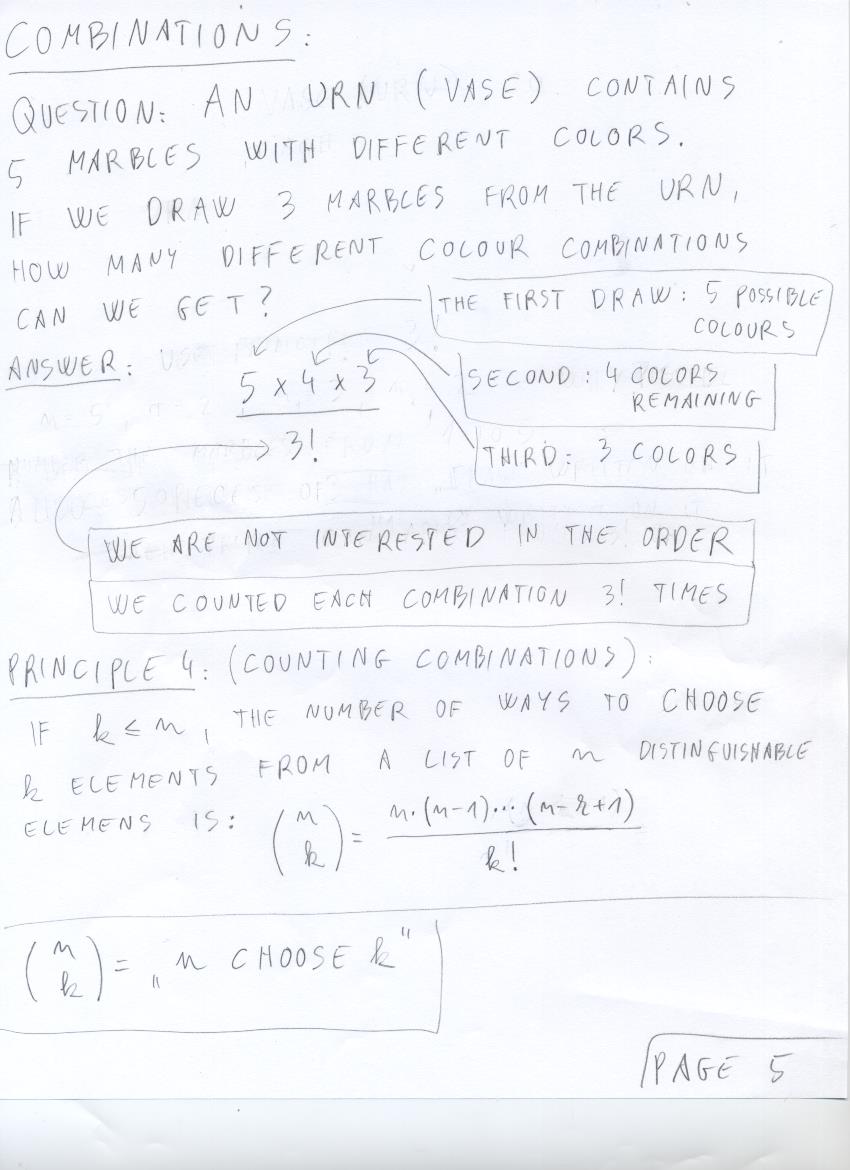 COMBINATIONS:
QUESTION: AN URN (VASE) CONTAINS
5 MARBLES WITH DIFFERENT COLORS.
IF WE DRAW 3 MARBLES FROM THE URN,
HOW MANY DIFFERENT COLOUR COMBINATIONS
CAN WE GET?
THE FIRST DRAW: 5 POSSIBLE
COLOURS
ANSWER:
5 x 4 x 3
3!
SECOND: 4 COLORS
REMAINING
THIRD: 3 COLORS
WE ARE NOT INTERESTED IN THE ORDER
WE COUNTED EACH COMBINATION 3! TIMES
PRINCIPLE 4: (COUNTING COMBINATIONS):
IF k ≤ n, THE NUMBER OF WAYS TO CHOOSE
k ELEMENTS FROM A LIST OF n DISTINGUISHABLE
ELEMENS IS: (n k) = n·(n-1)···(n-k+1) / k!
(n k) = „n CHOOSE k"
PAGE 5